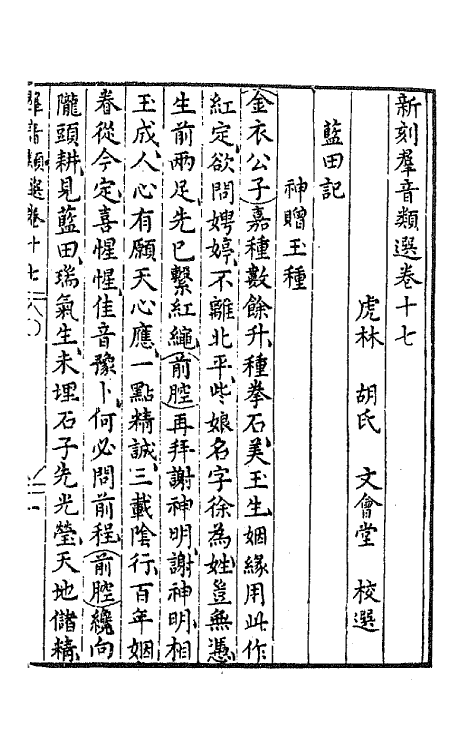 新刻羣音類選卷十七
虎林　胡氏　文會堂　校選
藍田記
神贈玉種
金衣公子嘉種數餘升種拳石美玉生姻緣用此作
紅定欲問娉婷不離北平些娘名字徐為姓豈無憑
生前兩足先已繫紅繩前腔再拜謝神明謝神明相
玉成人心有願天心應一點精誠三載陰行百年姻
眷從今定喜惺惺佳音豫卜何必問前程前腔纔向
隴頭耕見藍田瑞氣生未埋石子先光瑩天地儲精
羣音類選卷十七